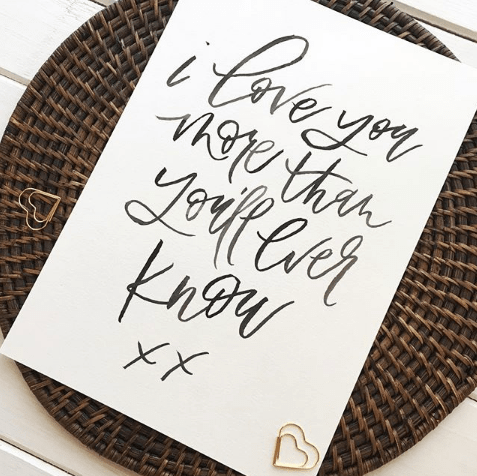 i love you
more than
you'll ever
know
xx